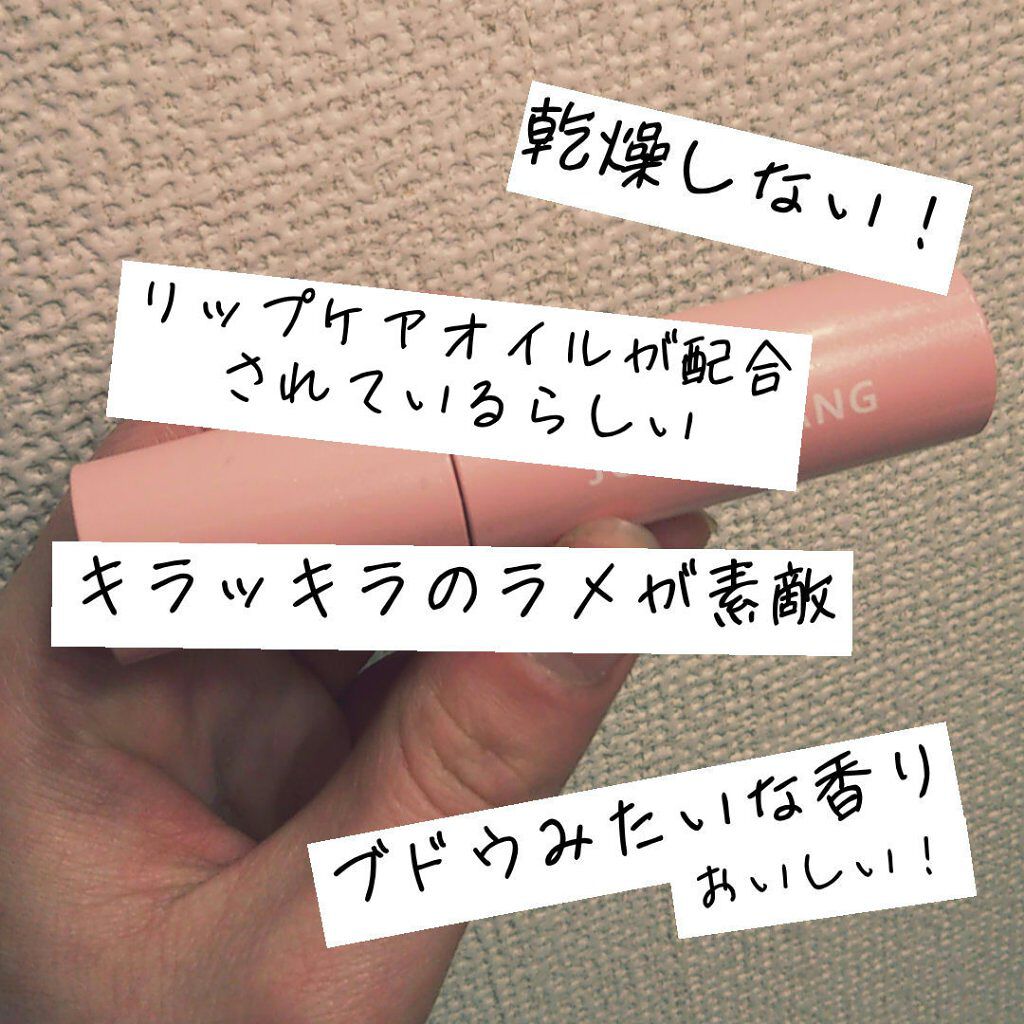 乾燥しない!
リップケアオイルが配合
されているらしい
ANG
キラッキラのラメが素敵
ブドウみたいな香り
おいしい!